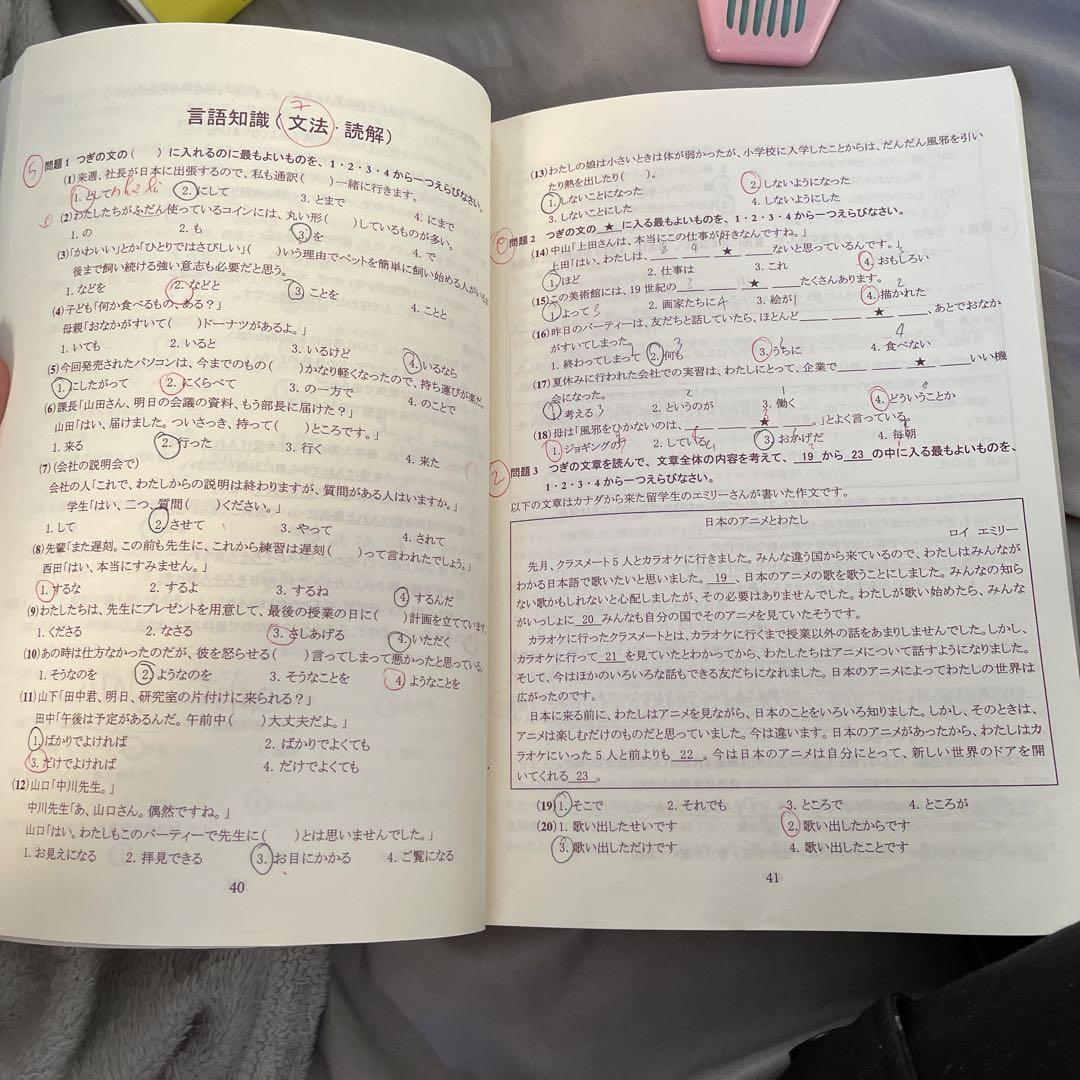 言語知識(文法・読解)
7
5
問題1 つぎの文の( )に入れるのに最もよいものを、1・2・3・4から一つえらびなさい。
(1)来週、社長が日本に出張するので、私も通訳( )一緒に行きます。
1. として 2. にして 3. とまで 4. にまで
(2)わたしたちがふだん使っているコインには、丸い形( )しているものが多い。
1. の 2. も 3. を 4. で
(3)「かわいい」とか「ひとりではさびしい」( )いう理由でペットを簡単に飼い始める人が
後まで飼い続ける強い意志も必要だと思う。
1. などを 2. などと 3. ことを 4. ことと
(4)子ども「何か食べるもの、ある?」
母親「おなかがすいて( )ドーナツがあるよ。」
1. いても 2. いると 3. いるけど 4. いるなら
(5)今回発売されたパソコンは、今までのもの( )かなり軽くなったので、持ち運びが楽だ。
1. にしたがって 2. にくらべて 3. の一方で 4. のことで
(6)課長「山田さん、明日の会議の資料、もう部長に届けた?」
山田「はい、届けました。ついさっき、持って( )ところです。」
1. 来る 2. 行った 3. 行く 4. 来た
(7)(会社の説明会で)
会社の人「これで、わたしからの説明は終わりますが、質問がある人はいますか。」
学生「はい、二つ、質問( )ください。」
1. して 2. させて 3. やって 4. されて
(8)先輩「また遅刻。この前も先生に、これから練習は遅刻( )って言われたでしょう。」
西田「はい、本当にすみません。」
1. するな 2. するよ 3. するね 4. するんだ
(9)わたしたちは、先生にプレゼントを用意して、最後の授業の日に( )計画を立てています。
1. くださる 2. なさる 3. さしあげる 4. いただく
(10)あの時は仕方なかったのだが、彼を怒らせる( )言ってしまって悪かったと思っている。
1. そうなのを 2. ようなのを 3. そうなことを 4. ようなことを
(11)山下「田中君、明日、研究室の片付けに来られる?」
田中「午後は予定があるんだ。午前中( )大丈夫だよ。」
1. ばかりでよければ 2. ばかりでよくても
3. だけでよければ 4. だけでよくても
(12)山口「中川先生。」
中川先生「あ、山口さん。偶然ですね。」
山口「はい。わたしもこのパーティーで先生に( )とは思いませんでした。」
1. お見えになる 2. 拝見できる 3. お目にかかる 4. ご覧になる
40
(13)わたしの娘は小さいときは体が弱かったが、小学校に入学したことからは、だんだん風邪を引い
たり熱を出したり( )。
1. しないことになった 2. しないようになった
3. しないことにした 4. しないようにした
問題2 つぎの文の ★ に入る最もよいものを、1・2・3・4から一つえらびなさい。
(14)中山「上田さんは、本当にこの仕事が好きなんですね。」
上田「はい、わたしは、 ★ ないと思っているんです。」
1. ほど 2. 仕事は 3. これ 4. おもしろい
(15)この美術館には、19世紀の ★ たくさんあります。
1. よって 2. 画家たちに 3. 絵が 4. 描かれた
(16)昨日のパーティーは、友だちと話していたら、ほとんど ★ 、あとでおなか
がすいてしまった。
1. 終わってしまって 2. 何も 3. うちに 4. 食べない
(17)夏休みに行われた会社での実習は、わたしにとって、企業で ★ いい機
会になった。
1. 考える 2. というのが 3. 働く 4. どういうことか
(18)母は「風邪をひかないのは、 ★ 。」とよく言っている。
1. ジョギングの 2. している 3. おかげだ 4. 毎朝
2
問題3 つぎの文章を読んで、文章全体の内容を考えて、 19 から 23 の中に入る最もよいものを、
1・2・3・4から一つえらびなさい。
以下の文章はカナダから来た留学生のエミリーさんが書いた作文です。
日本のアニメとわたし
ロイ エミリー
先月、クラスメート5人とカラオケに行きました。みんな違う国から来ているので、わたしはみんなが
わかる日本語で歌いたいと思いました。 19 、日本のアニメの歌を歌うことにしました。みんなの知ら
ない歌かもしれないと心配しましたが、その必要はありませんでした。わたしが歌い始めたら、みんな
がいっしょに 20 みんなも自分の国でそのアニメを見ていたそうです。
カラオケに行ったクラスメートとは、カラオケに行くまで授業以外の話をあまりしませんでした。しかし、
カラオケに行って 21 を見ていたとわかってから、わたしたちはアニメについて話すようになりました。
そして、今はほかのいろいろな話もできる友だちになれました。日本のアニメによってわたしの世界は
広がったのです。
日本に来る前に、わたしはアニメを見ながら、日本のことをいろいろ知りました。しかし、そのときは、
アニメは楽しむだけのものだと思っていました。今は違います。日本のアニメがあったから、わたしはカ
ラオケにいった5人と前よりも 22 。今は日本のアニメは自分にとって、新しい世界のドアを開
いてくれる 23 。
(19)1. そこで 2. それでも 3. ところで 4. ところが
(20)1. 歌い出したせいです 2. 歌い出したからです
3. 歌い出しただけです 4. 歌い出したことです
41